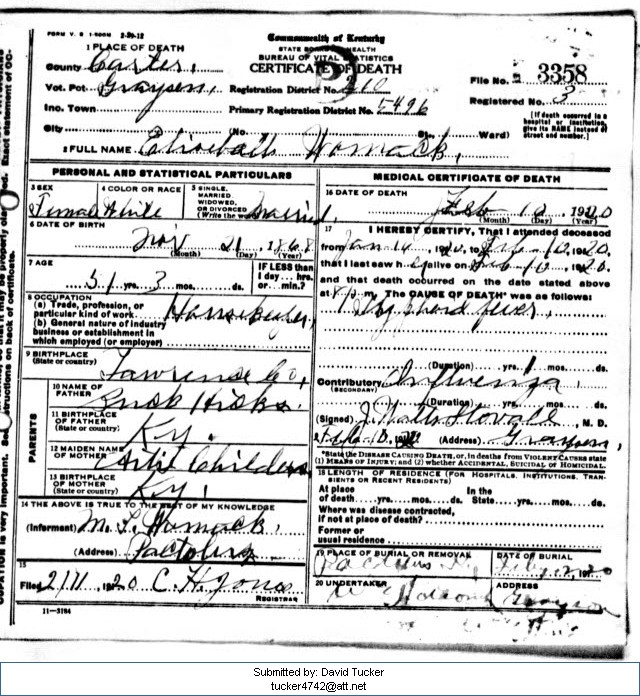 FORM V. S 1-500M 2-29-12
Commonwealth of Kentucky
STATE BOARD OF HEALTH
BUREAU OF VITAL STATISTICS
CERTIFICATE OF DEATH
1 PLACE OF DEATH
County Carter,
Vot. Pct Grayson, Registration District No. 210
File No. 3358
Inc. Town Primary Registration District No. 5496
Registered No. 3
City No. St., Ward)
[If death occurred in a hospital or institution, give its NAME instead of street and number.]
2 FULL NAME Elizabeth Womack,
PERSONAL AND STATISTICAL PARTICULARS
3 SEX Female
4 COLOR OR RACE White
5 SINGLE, MARRIED WIDOWED, OR DIVORCED (Write the word) Married
6 DATE OF BIRTH
Nov 21, 1868
(Month) (Day) (Year)
7 AGE
51 yrs. 3 mos. ds.
IF LESS than 1 day, hrs. or min.?
8 OCCUPATION
(a) Trade, profession, or particular kind of work Housekeeper,
(b) General nature of industry business or establishment in which employed (or employer)
9 BIRTHPLACE (State or country) Lawrence Co,
PARENTS
10 NAME OF FATHER Hicks.
11 BIRTHPLACE OF FATHER (State or country) Ky.
12 MAIDEN NAME OF MOTHER Childers
13 BIRTHPLACE OF MOTHER (State or country) Ky.
14 THE ABOVE IS TRUE TO THE BEST OF MY KNOWLEDGE
(Informant) M. L. Womack,
(Address) Pactolus
15
Filed 2/11, 1920 C. H. Jones
REGISTRAR
11-3184
MEDICAL CERTIFICATE OF DEATH
16 DATE OF DEATH
Feb 10 1920
(Month) (Day) (Year)
17 I HEREBY CERTIFY, That I attended deceased
from Jan 14, 1920, to Feb 10, 1920,
that I last saw h er alive on Feb 10, 1920.
and that death occurred on the date stated above
at m. The CAUSE OF DEATH* was as follows:
Typhoid fever,
(Duration) yrs. 1 mos. ds.
Contributory (SECONDARY) Influenza
(Duration) yrs. mos. ds.
(Signed) J Watts Stovall, M. D.
(Address) Grayson,
*State the DISEASE CAUSING DEATH, or, in deaths from VIOLENT CAUSES state (1) MEANS OF INJURY; and (2) whether ACCIDENTAL, SUICIDAL OR HOMICIDAL.
18 LENGTH OF RESIDENCE (FOR HOSPITALS, INSTITUTIONS, TRANSIENTS OR RECENT RESIDENTS)
At place of death yrs. mos. ds. In the State yrs. mos. ds.
Where was disease contracted, if not at place of death?
Former or usual residence
19 PLACE OF BURIAL OR REMOVAL Pactolus Ky,
DATE OF BURIAL
20 UNDERTAKER
ADDRESS Grayson
Submitted by: David Tucker
tucker4742@att.net